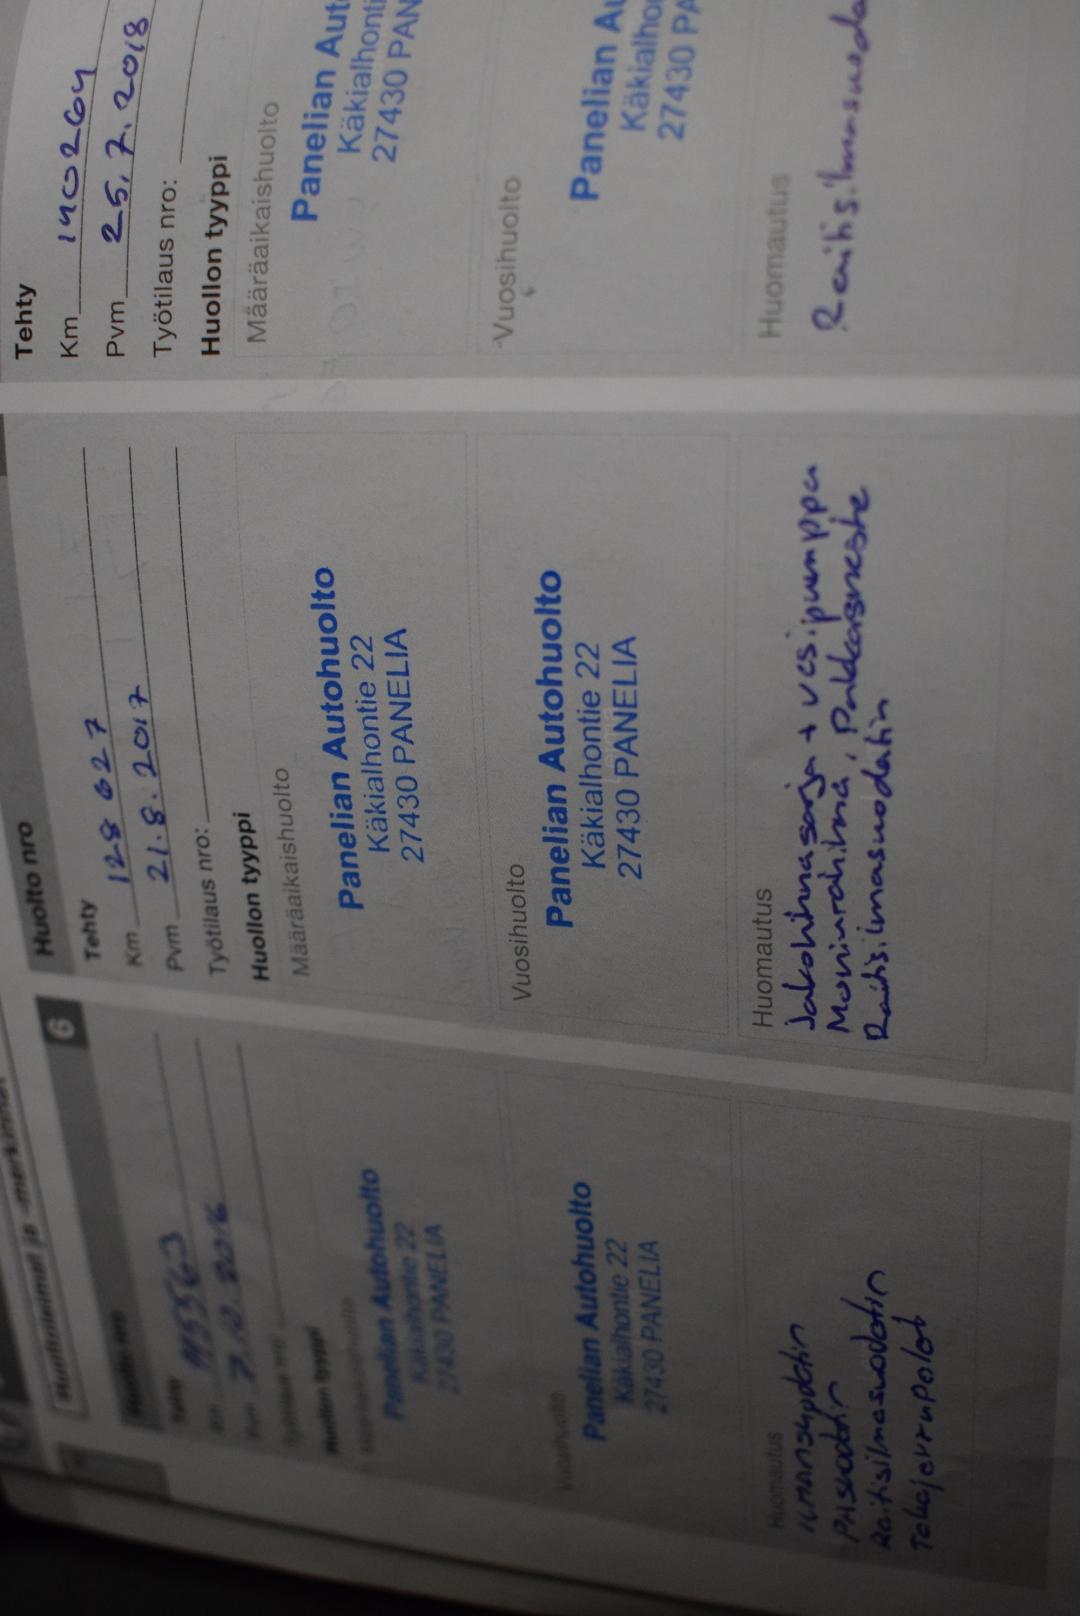 Huoltoleimat ja -merkinnät
Huolto nro
Tehty
Km 115563
Pvm 7.12.2016
Työtilaus nro:
Huollon tyyppi
Määräaikaishuolto
Panelian Autohuolto
Käkialhontie 22
27430 PANELIA
Vuosihuolto
Panelian Autohuolto
Käkialhontie 22
27430 PANELIA
Huomautus
Ilmansuodatin
PAsuodatin
Raitisilmasuodatin
Takajarrupalat
6
Huolto nro
Tehty
Km 128 627
Pvm 21.8.2017
Työtilaus nro:
Huollon tyyppi
Määräaikaishuolto
Panelian Autohuolto
Käkialhontie 22
27430 PANELIA
Vuosihuolto
Panelian Autohuolto
Käkialhontie 22
27430 PANELIA
Huomautus
Jakohihnasarja + vesipumppu
Moniurahihna, Pakkasneste
Raitisilmasuodatin
Tehty
Km 140264
Pvm 25.7.2018
Työtilaus nro:
Huollon tyyppi
Määräaikaishuolto
Panelian Aut
Käkialhonti
27430 PAN
Vuosihuolto
Panelian Au
Käkialho
27430 PA
Huomautus
Raitisilmasuoda